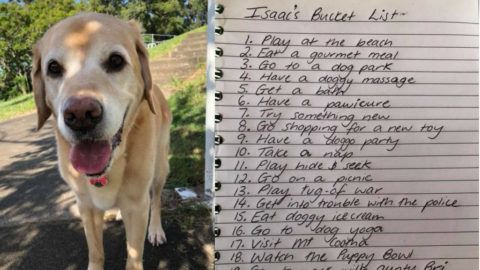 Isaac's Bucket List-
1. Play at the beach
2. Eat a gourmet meal
3. Go to a dog park
4. Have a doggy massage
5. Get a bath
6. Have a pawicure
7. Try something new
8. Go shopping for a new toy
9. Have a doggo party
10. Take a nap
11. Play hide & seek
12. Go on a picnic
13. Play tug-of war
14. Get into trouble with the police
15. Eat doggy icecream
16. Go to dog yoga
17. Visit Mt Cootha
18. Watch the Puppy Bowl
with aunty Bri